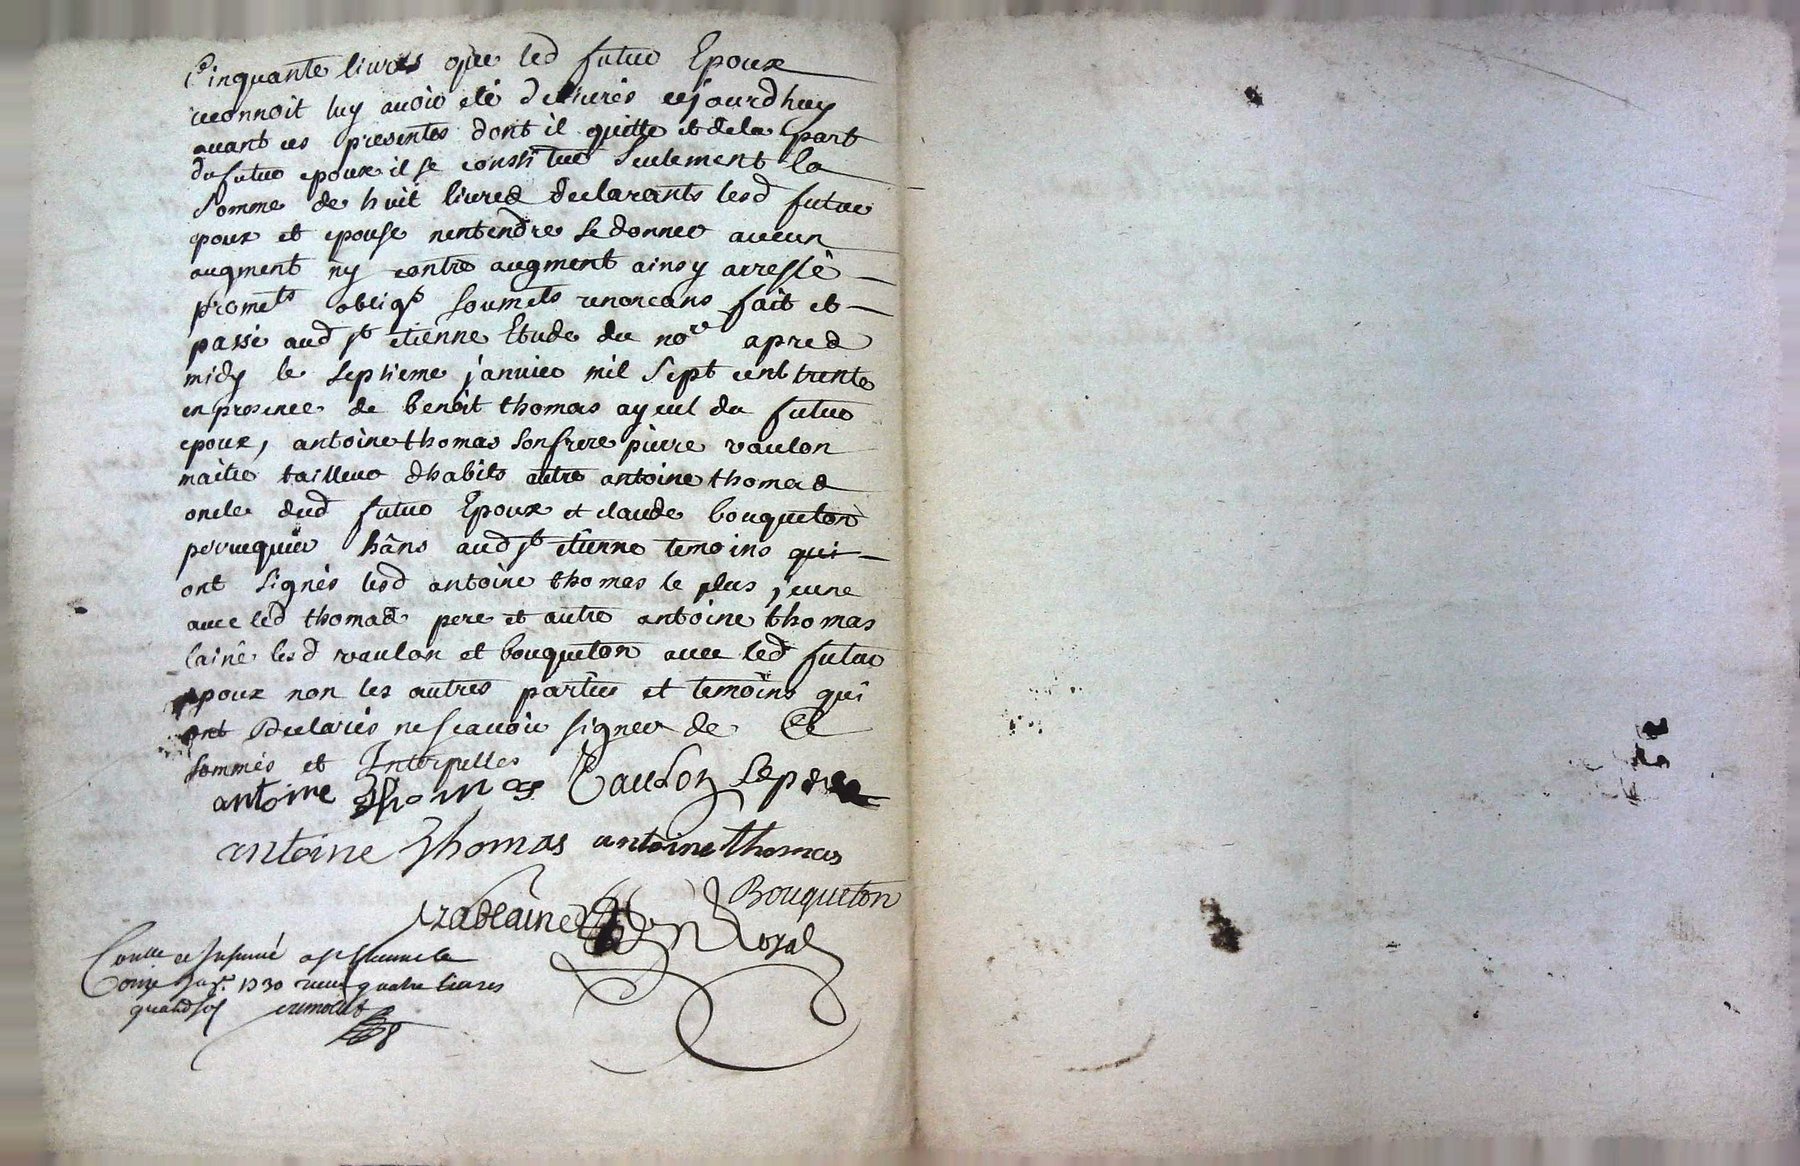 Cinquante livres que led futur Epoux
reconnoit luy avoir eté delivrés cejourdhuy
avant ces presentes dont il quitte et de la part
du futur epoux il se constitue seulement la
somme de huit livres declarants lesd futur
epoux et epouse nentendre se donner aucun
augment ny contre augment ainsy arresté
promets obligs soumets renonceans fait et
passé aud st etienne Etude du nore apres
midy le septieme janvier mil sept cent trente
en presence de benoit thomas ayeul du futur
epoux, antoine thomas son frere pierre vaulon
maitre tailleur dhabits autre antoine thomas
oncle dud futur Epoux et claude bouqueton
perruquier hâns aud st etienne temoins qui
ont signés lesd antoine thomas le plus jeune
avec led thomas pere et autre antoine thomas
lainé lesd vaulon et bouqueton avec led futur
epoux non les autres parties et temoins qui
ont declarés ne scavoir signer de ce
sommés et Interpellés
antoine Thomas Vaulon
antoine Thomas antoine thomas
Bouqueton
Royal
Conllé et Insinué a st etienne le
1730 receu quatre livres